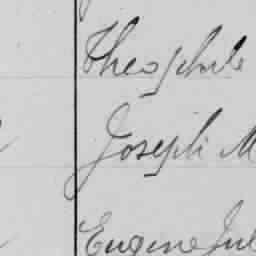 Theophile
Joseph M
Eugene Jul